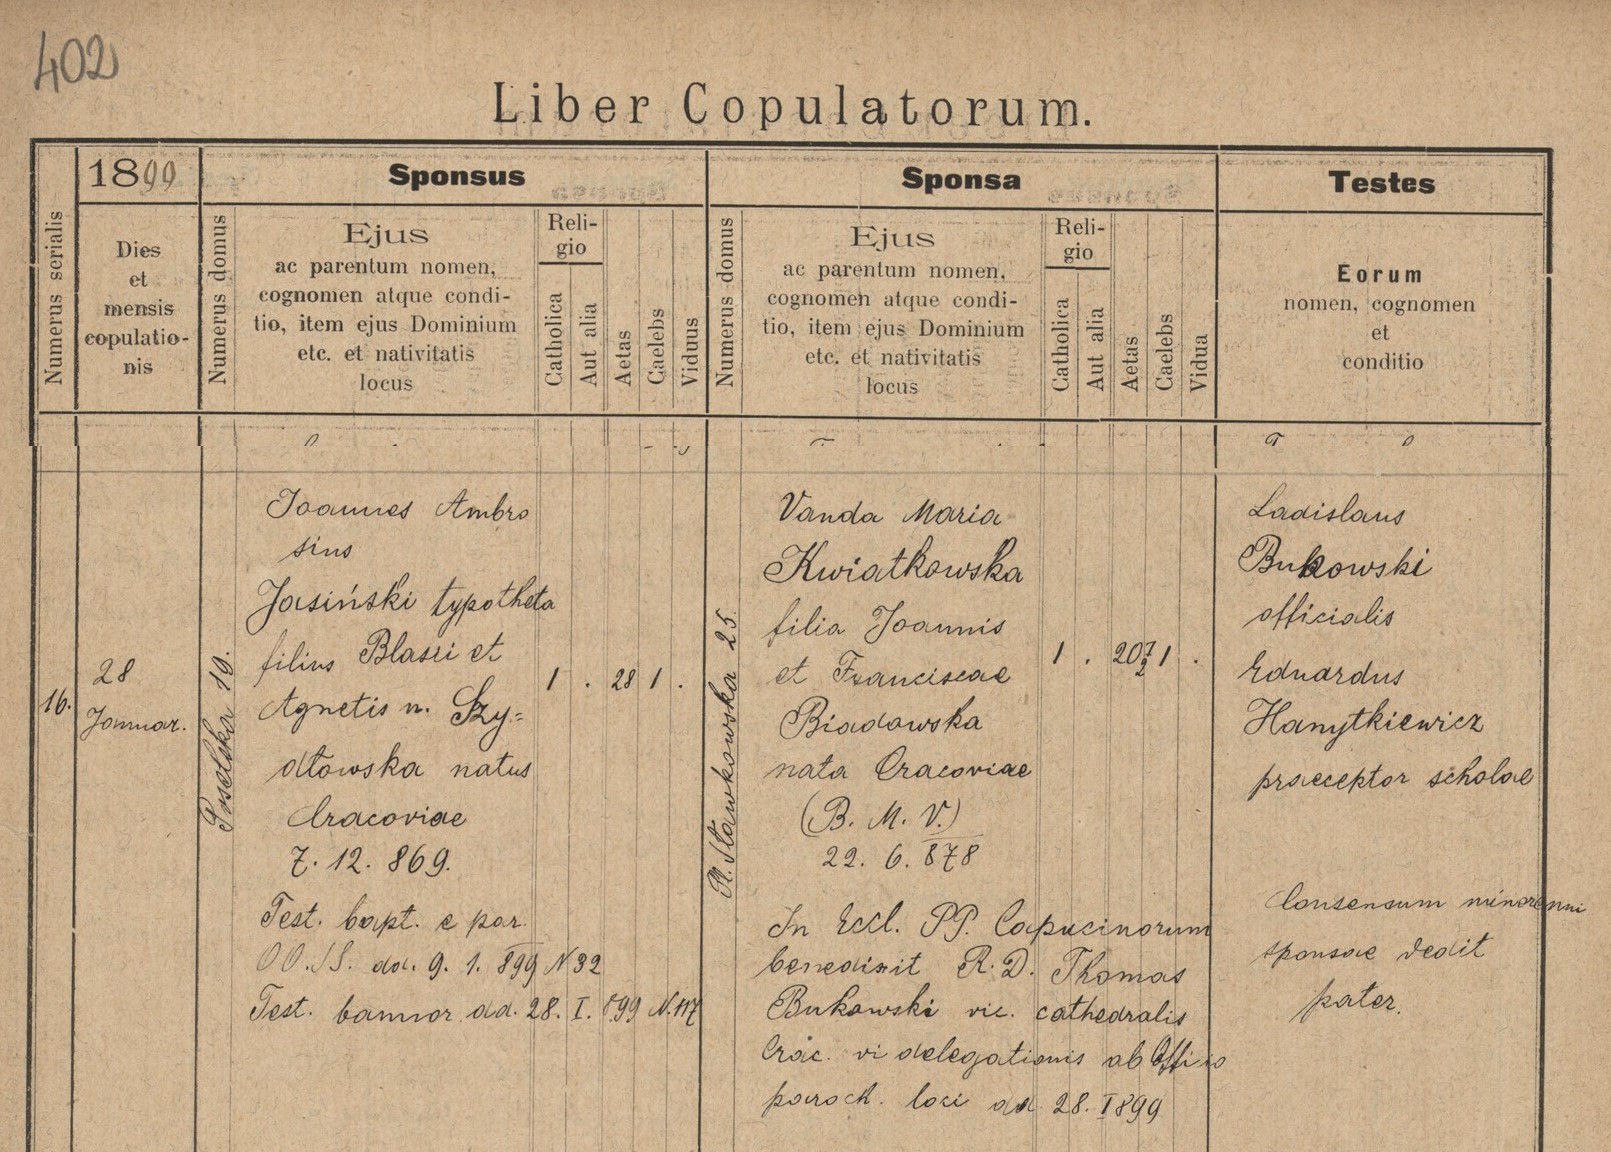 402
Liber Copulatorum.
Numerus serialis
1899
Dies
et
mensis
copulatio-
nis
Sponsus
Numerus domus
Ejus
ac parentum nomen,
cognomen atque condi-
tio, item ejus Dominium
etc. et nativitatis
locus
Reli-
gio
Catholica
Aut alia
Aetas
Caelebs
Viduus
Sponsa
Numerus domus
Ejus
ac parentum nomen,
cognomen atque condi-
tio, item ejus Dominium
etc. et nativitatis
locus
Reli-
gio
Catholica
Aut alia
Aetas
Caelebs
Vidua
Testes
Eorum
nomen, cognomen
et
conditio
16.
28
Januar.
Poselska 19.
Joannes Ambro
sius
Jasiński typotheta
filius Blasii et
Agnetis n. Szy=
dłowska natus
Cracoviae
7. 12. 869.
Test. bapt. e par.
OO.SS. dd. 9. 1. 899 N 32
Test. bannor dd. 28. I. 899 N. 117
1 . 28 1 .
Sławkowska 25.
Vanda Maria
Kwiatkowska
filia Joannis
et Franciscae
Biadowska
nata Cracoviae
(B. M. V.)
22. 6. 878
In Eccl. PP. Capucinorum
benedixit R. D. Thomas
Bukowski vic. cathedralis
Crac. vi delegationis ab Officio
paroch. loci dd 28. I 899
1 . 20 7/2 1 .
Ladislaus
Bukowski
officialis
Eduardus
Hanytkiewicz
praeceptor scholae
Consensum minorenni
sponsae dedit
pater.